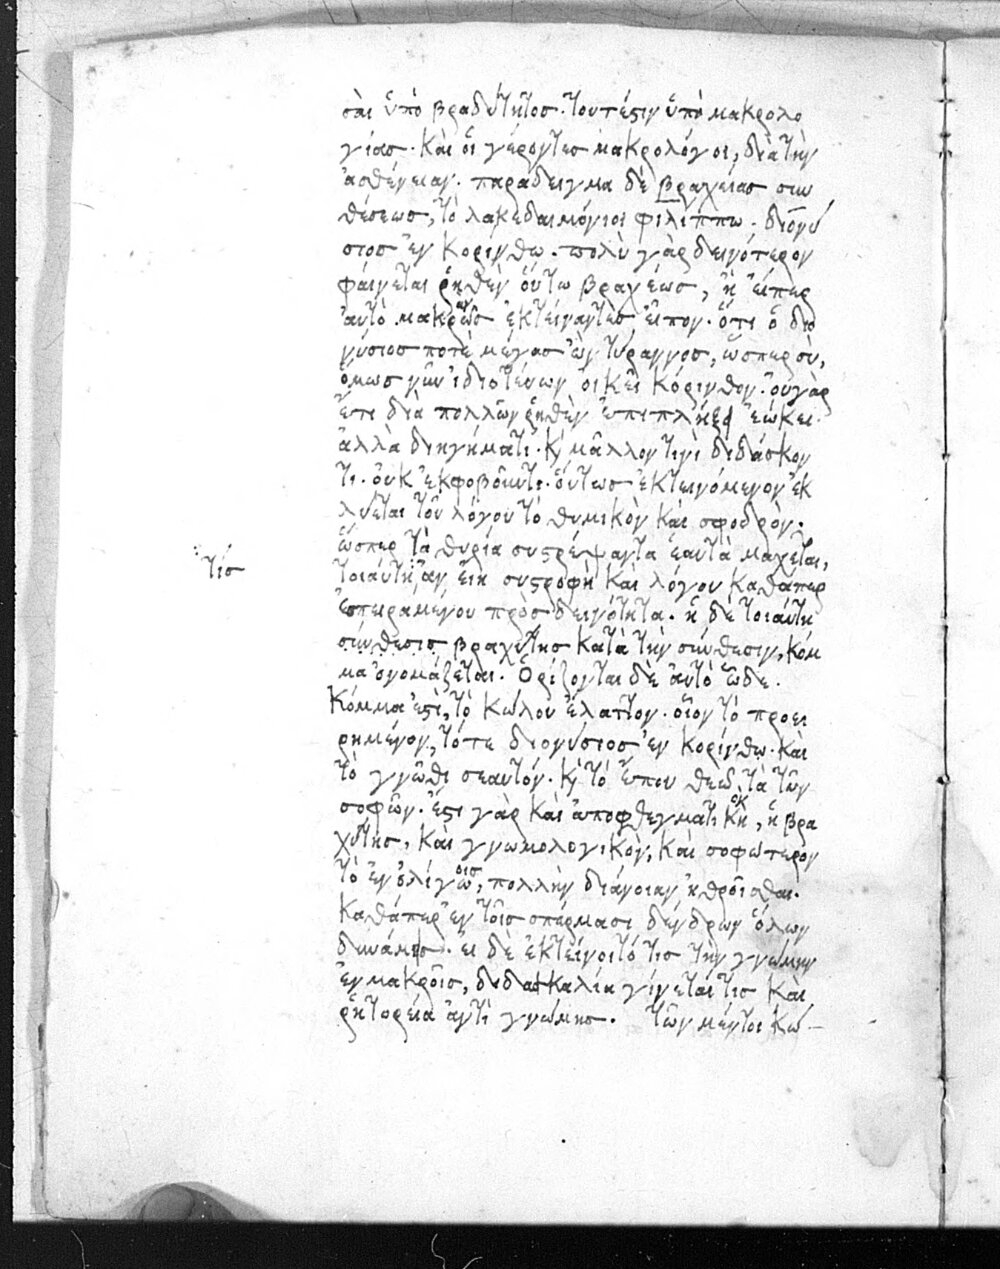 σαι ὑπὸ βραδύτητος· τουτέστιν ὑπὸ μακρολο
γίας. Καὶ οἱ γέροντες μακρολόγοι, διὰ τὴν
ἀσθένειαν. παράδειγμα δὲ βραχείας συν
θέσεως, τὸ λακεδαιμόνιοι φιλίππω. διονύ
σιος ἐν κορίνθω. πολὺ γὰρ δεινότερον
φαίνεται ῥηθὲν οὕτω βραχέως, ἢ εἴπερ
αὐτὸ μακρῶς ἐκτείναντες εἶπον. ὅτι ὁ διο
νύσιος ποτὲ μέγας ὢν τύραννος, ὥσπερ σὺ,
ὅμως νῦν ἰδιωτεύων οἰκεῖ Κόρινθον. οὐ γὰρ
ἔτι διὰ πολλῶν ῥηθὲν ἐπιπλήξει ἐώκει.
ἀλλὰ διηγήματι. κ μᾶλλον τινὶ διδάσκον
τι. οὐκ ἐκφοβοῦντι. οὕτως ἐκτεινόμενον ἐκ
λύεται τοῦ λόγου τὸ θυμικὸν καὶ σφοδρὸν.
ὥσπερ τὰ θηρία συστρέψαντα ἑαυτὰ μάχεται,
τοιαύτη ἂν εἴη συστροφὴ καὶ λόγου καθάπερ
τίς
ἐσπειραμένου πρὸς δεινότητα. ἡ δὲ τοιαύτη
σύνθεσις βραχύτης κατὰ τὴν σύνθεσιν, κόμ
μα ὀνομάζεται. Ὁρίζονται δὲ αὐτὸ ὧδε.
Κόμμα ἐστὶ, τὸ κώλου ἔλαττον. οἷον τὸ προει
ρημένον, τό τε διονύσιος ἐν κορίνθω. καὶ
τὸ γνῶθι σεαυτόν. κ τὸ ἕπου θεῶ, τὰ τῶν
σοφῶν. ἔστι γὰρ καὶ ἀποφθεγματικὴ, ἡ βρα
χύτης, καὶ γνωμολογικὸν, καὶ σοφώτερον
τὸ ἐν ὀλίγω, πολλὴν διάνοιαν ἠθροῖσθαι.
Καθάπερ ἐν τοῖς σπέρμασι δένδρων ὅλων
δυνάμεις. εἰ δὲ ἐκτείνοιτό τις τὴν γνώμην
ἐν μακροῖς, διδασκαλία γίνεται τις καὶ
ῥητορεία ἀντὶ γνώμης. τῶν μέντοι κώ